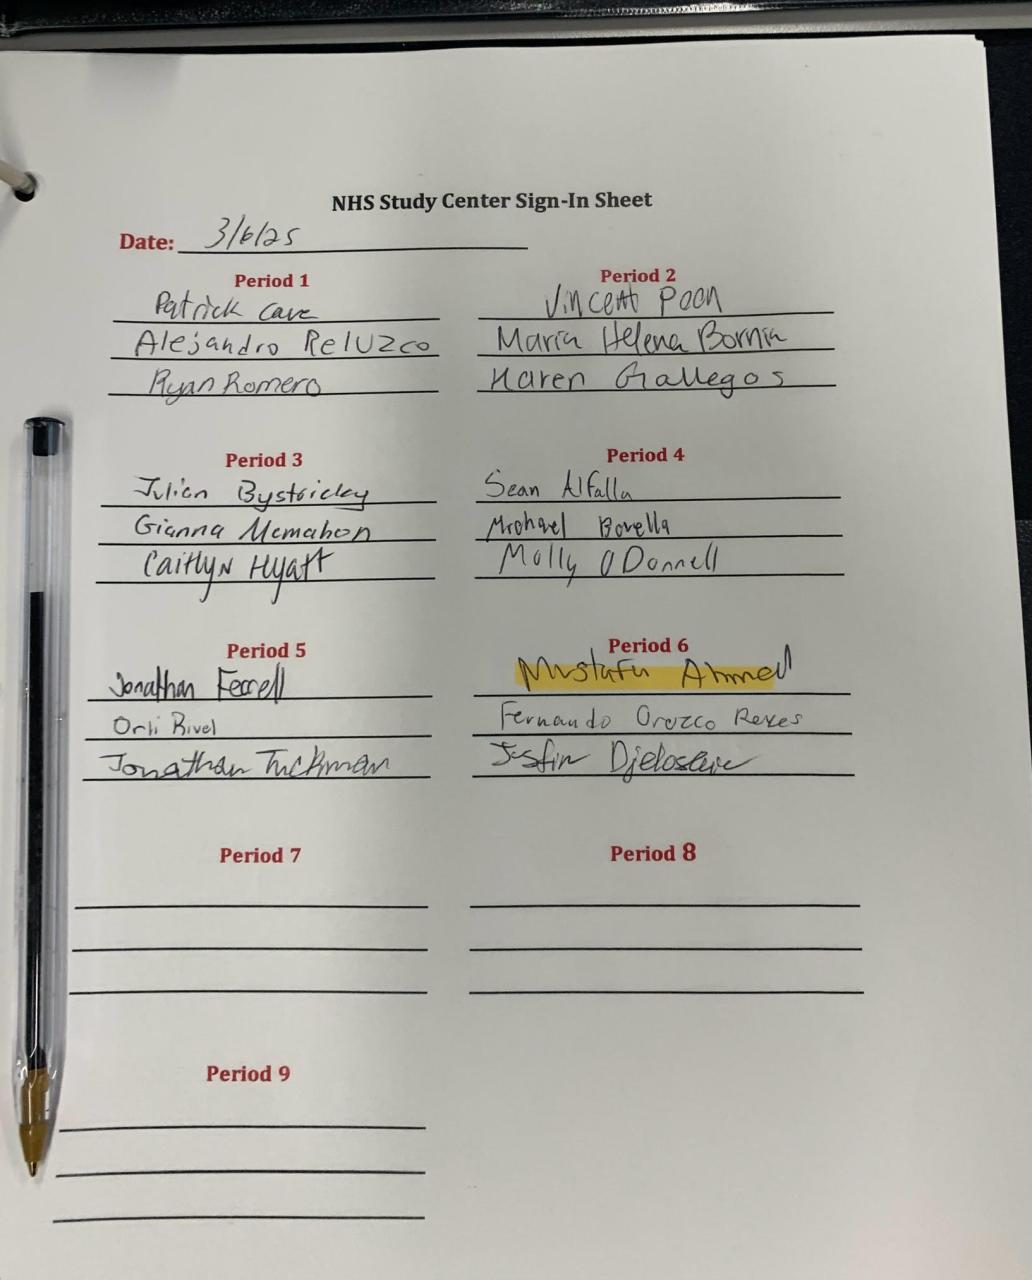 NHS Study Center Sign-In Sheet
Date: 3/6/25
Period 1
Patrick Cave
Alejandro Reluzco
Ryan Romero
Period 2
Vincent Poon
Maria Helena Bornia
Karen Gallegos
Period 3
Julien Bystricky
Gianna Mcmahon
Caitlyn Hyatt
Period 4
Sean Alfalla
Michael Borella
Molly O Donnell
Period 5
Jonathan Ferrell
Orli Rivel
Jonathan Tuckman
Period 6
Mustafa Ahmed
Fernando Orozco Reyes
Justin
Period 7
Period 8
Period 9